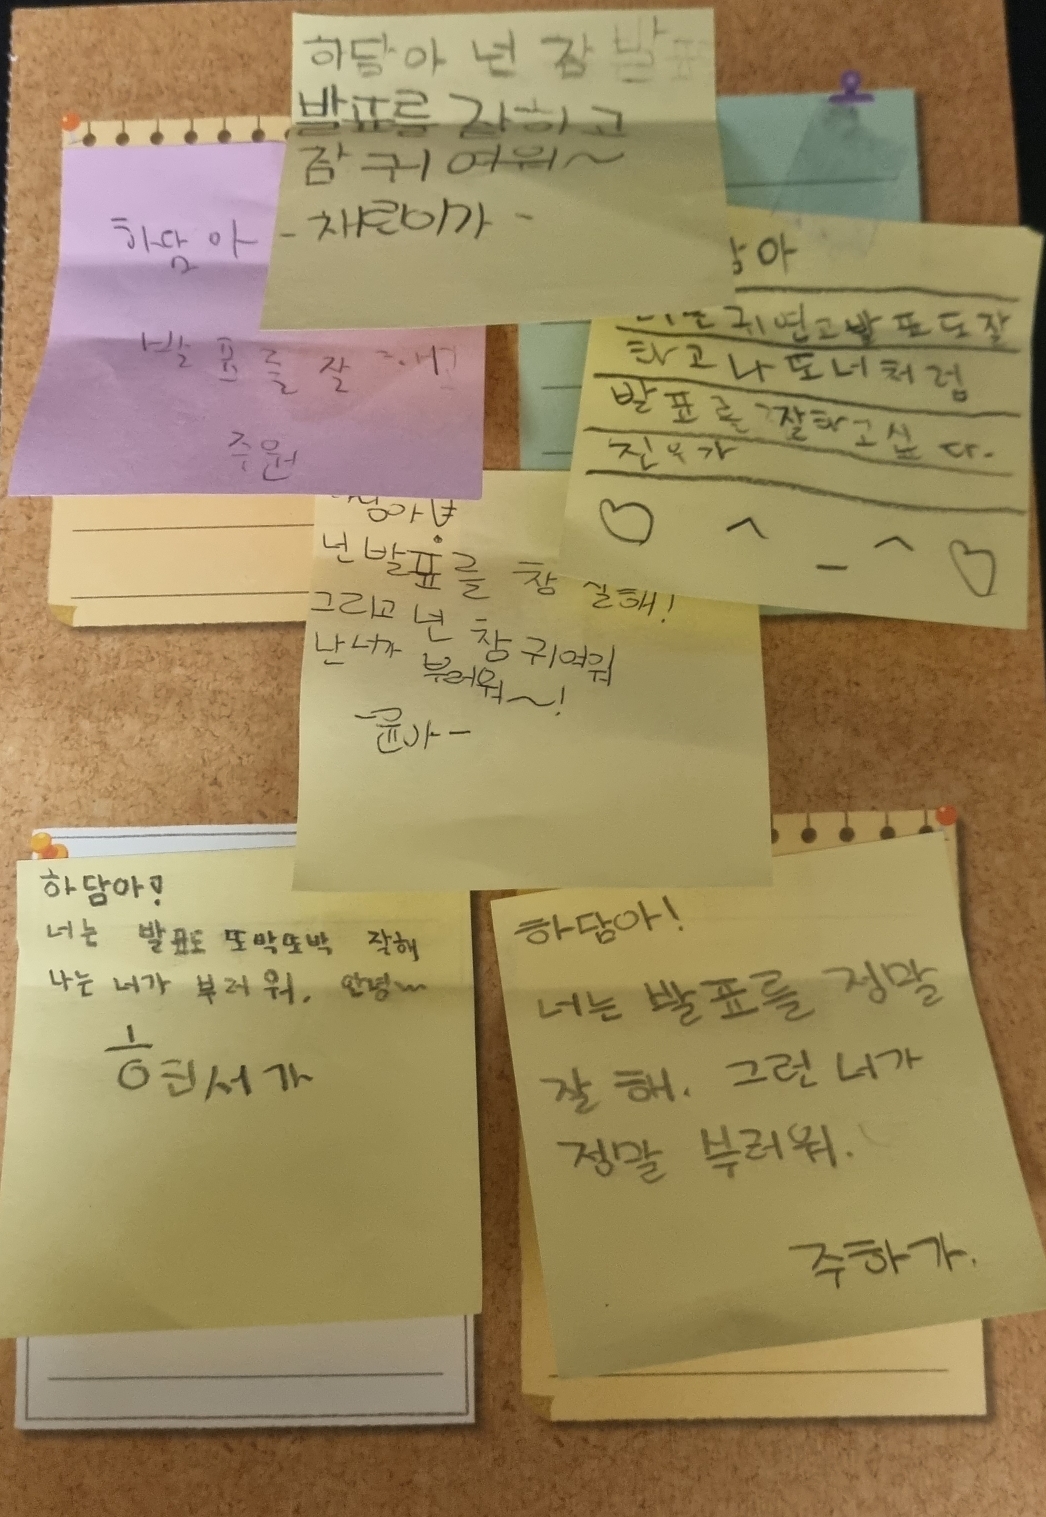 하담아 넌 참 발표
발표를 잘하고
참 귀여워~
-채린이가-
하담아
발표를 잘
주원
담아
너는 귀엽고 발표도 잘
하고 나또 너처럼
발표를 잘하고 싶다.
진우가
담아!
넌 발표를 참 잘해!
그리고 넌 참 귀여워
난 너가 부러워~!
-윤아-
하담아!
너는 발표도 또박또박 잘해
나는 너가 부러워. 안녕~
현서가
하담아!
너는 발표를 정말
잘 해. 그런 너가
정말 부러워.
주하가.